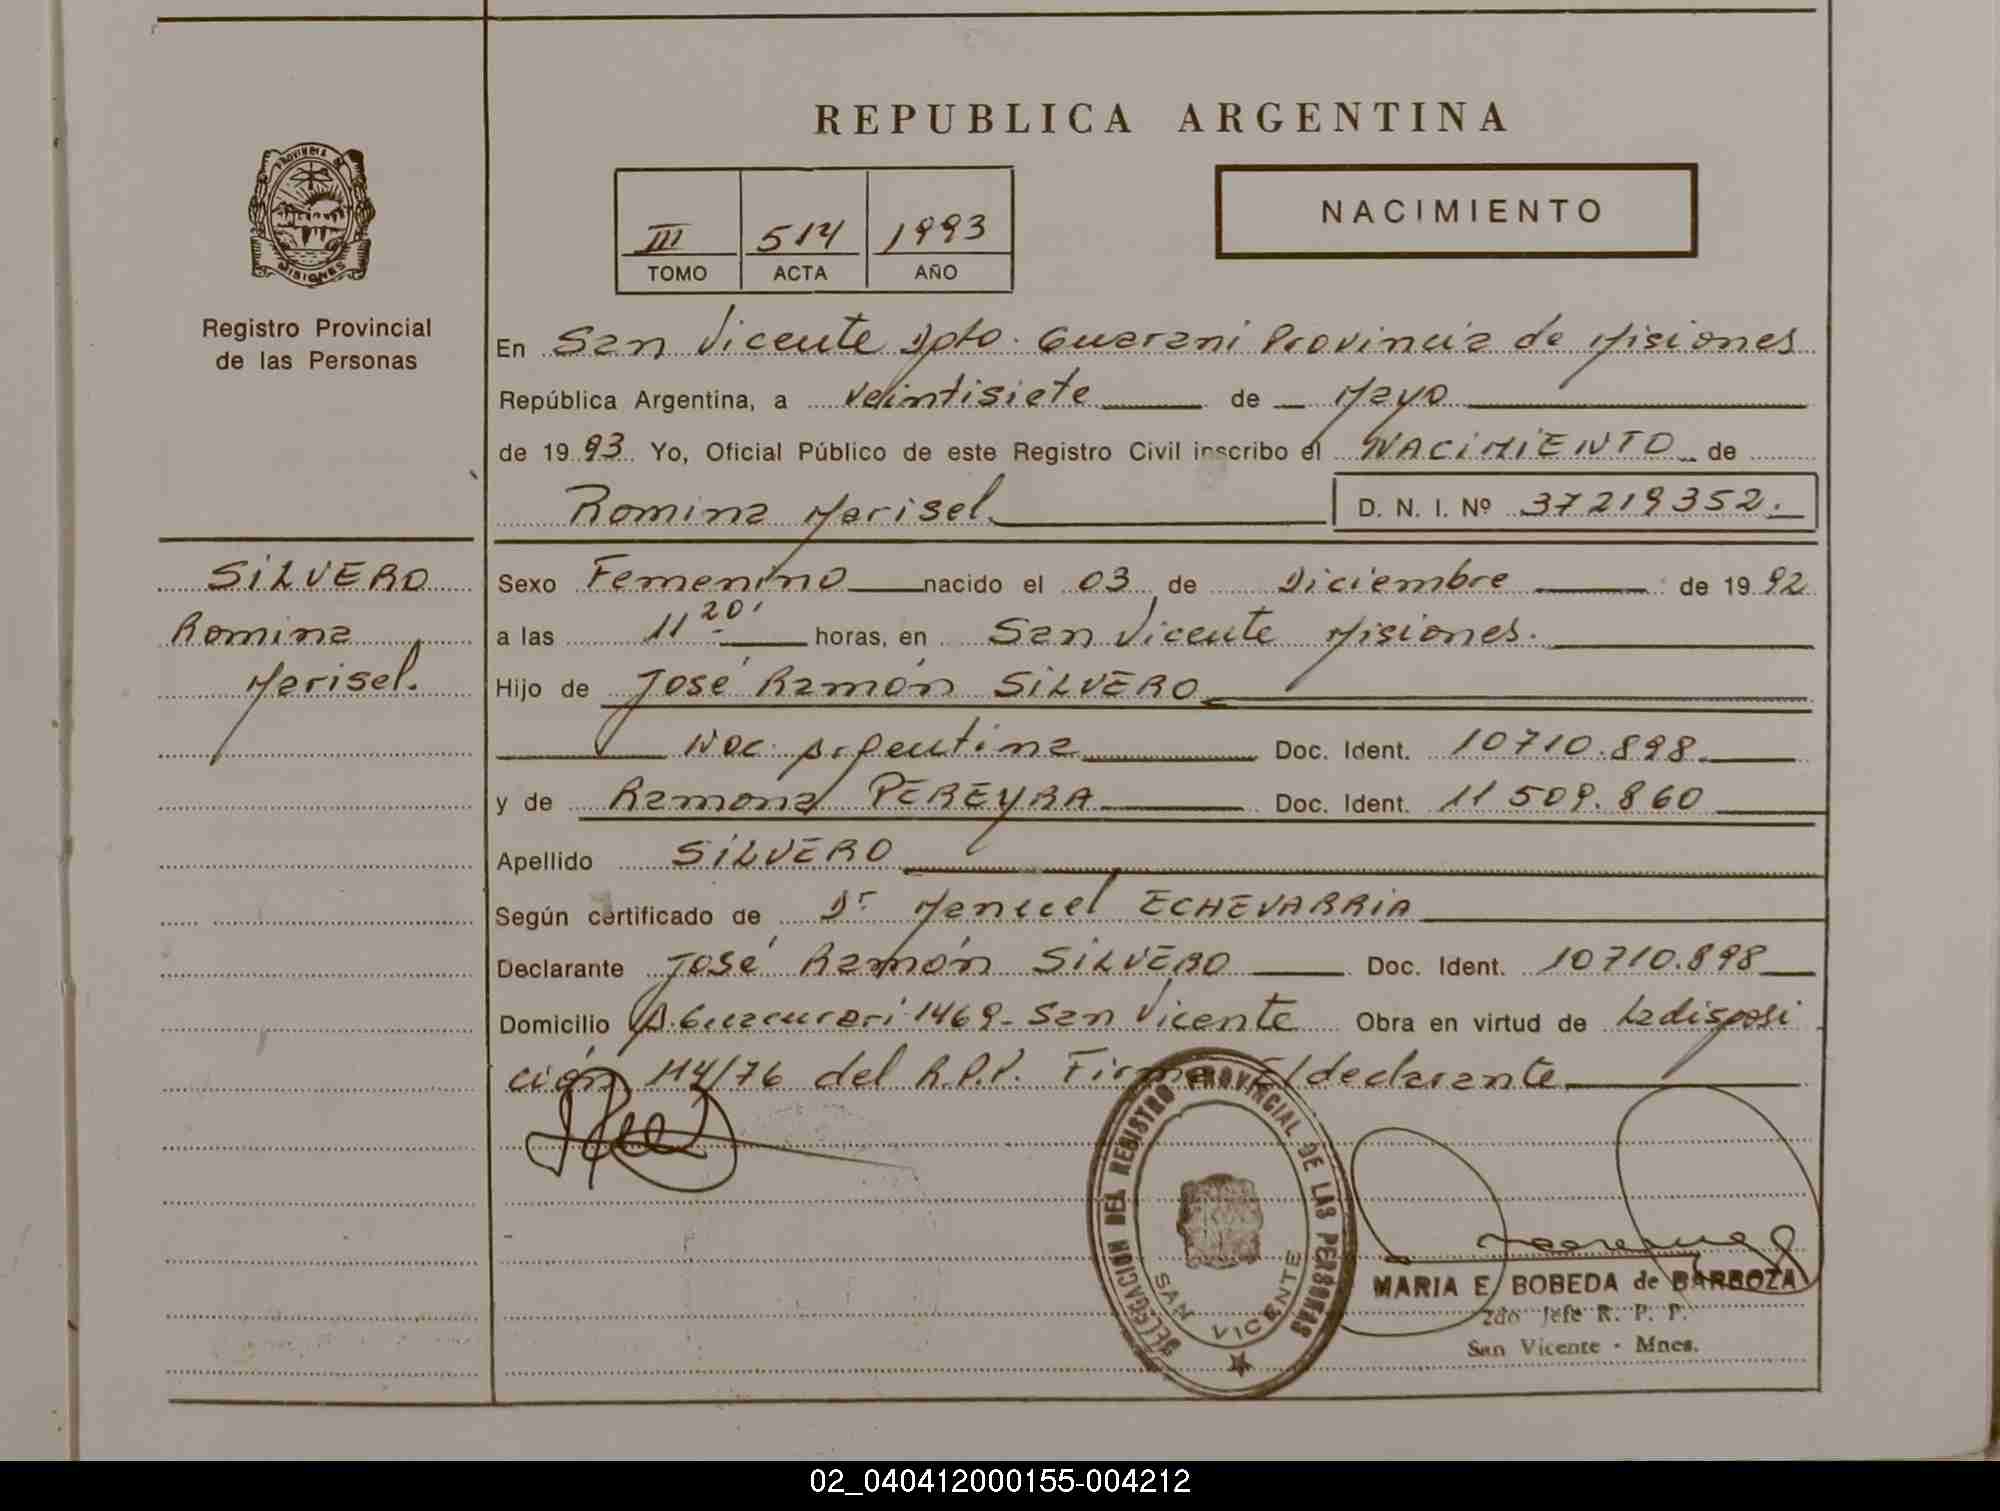 REPUBLICA ARGENTINA
PROVINCIA DE
MISIONES
Registro Provincial
de las Personas
III 514 1993
TOMO ACTA AÑO
NACIMIENTO
En San Vicente Dpto. Guarani Provincia de Misiones
República Argentina, a veintisiete de Mayo
de 1993 Yo, Oficial Público de este Registro Civil inscribo el NACIMIENTO de
Romina Marisel D. N. I. Nº 37219352.
SILVERO
Romina
Marisel.
Sexo Femenino nacido el 03 de Diciembre de 1992
a las 11 20' horas, en San Vicente Misiones.
Hijo de José Ramón SILVERO
Nac. Argentina Doc. Ident. 10710.898
y de Ramona PEREYRA Doc. Ident. 11 509.860
Apellido SILVERO
Según certificado de Dr Manuel ECHEVARRIA
Declarante José Ramón SILVERO Doc. Ident. 10710.898
Domicilio A. Guacurari 1469- San Vicente Obra en virtud de La disposi
ción 114/76 del R.P.P. Firma El declarante
DELEGACION DEL REGISTRO PROVINCIAL DE LAS PERSONAS
SAN VICENTE
MARIA E. BOBEDA de BARBOZA
2do Jefe R. P. P.
San Vicente - Mnes.
02_040412000155-004212